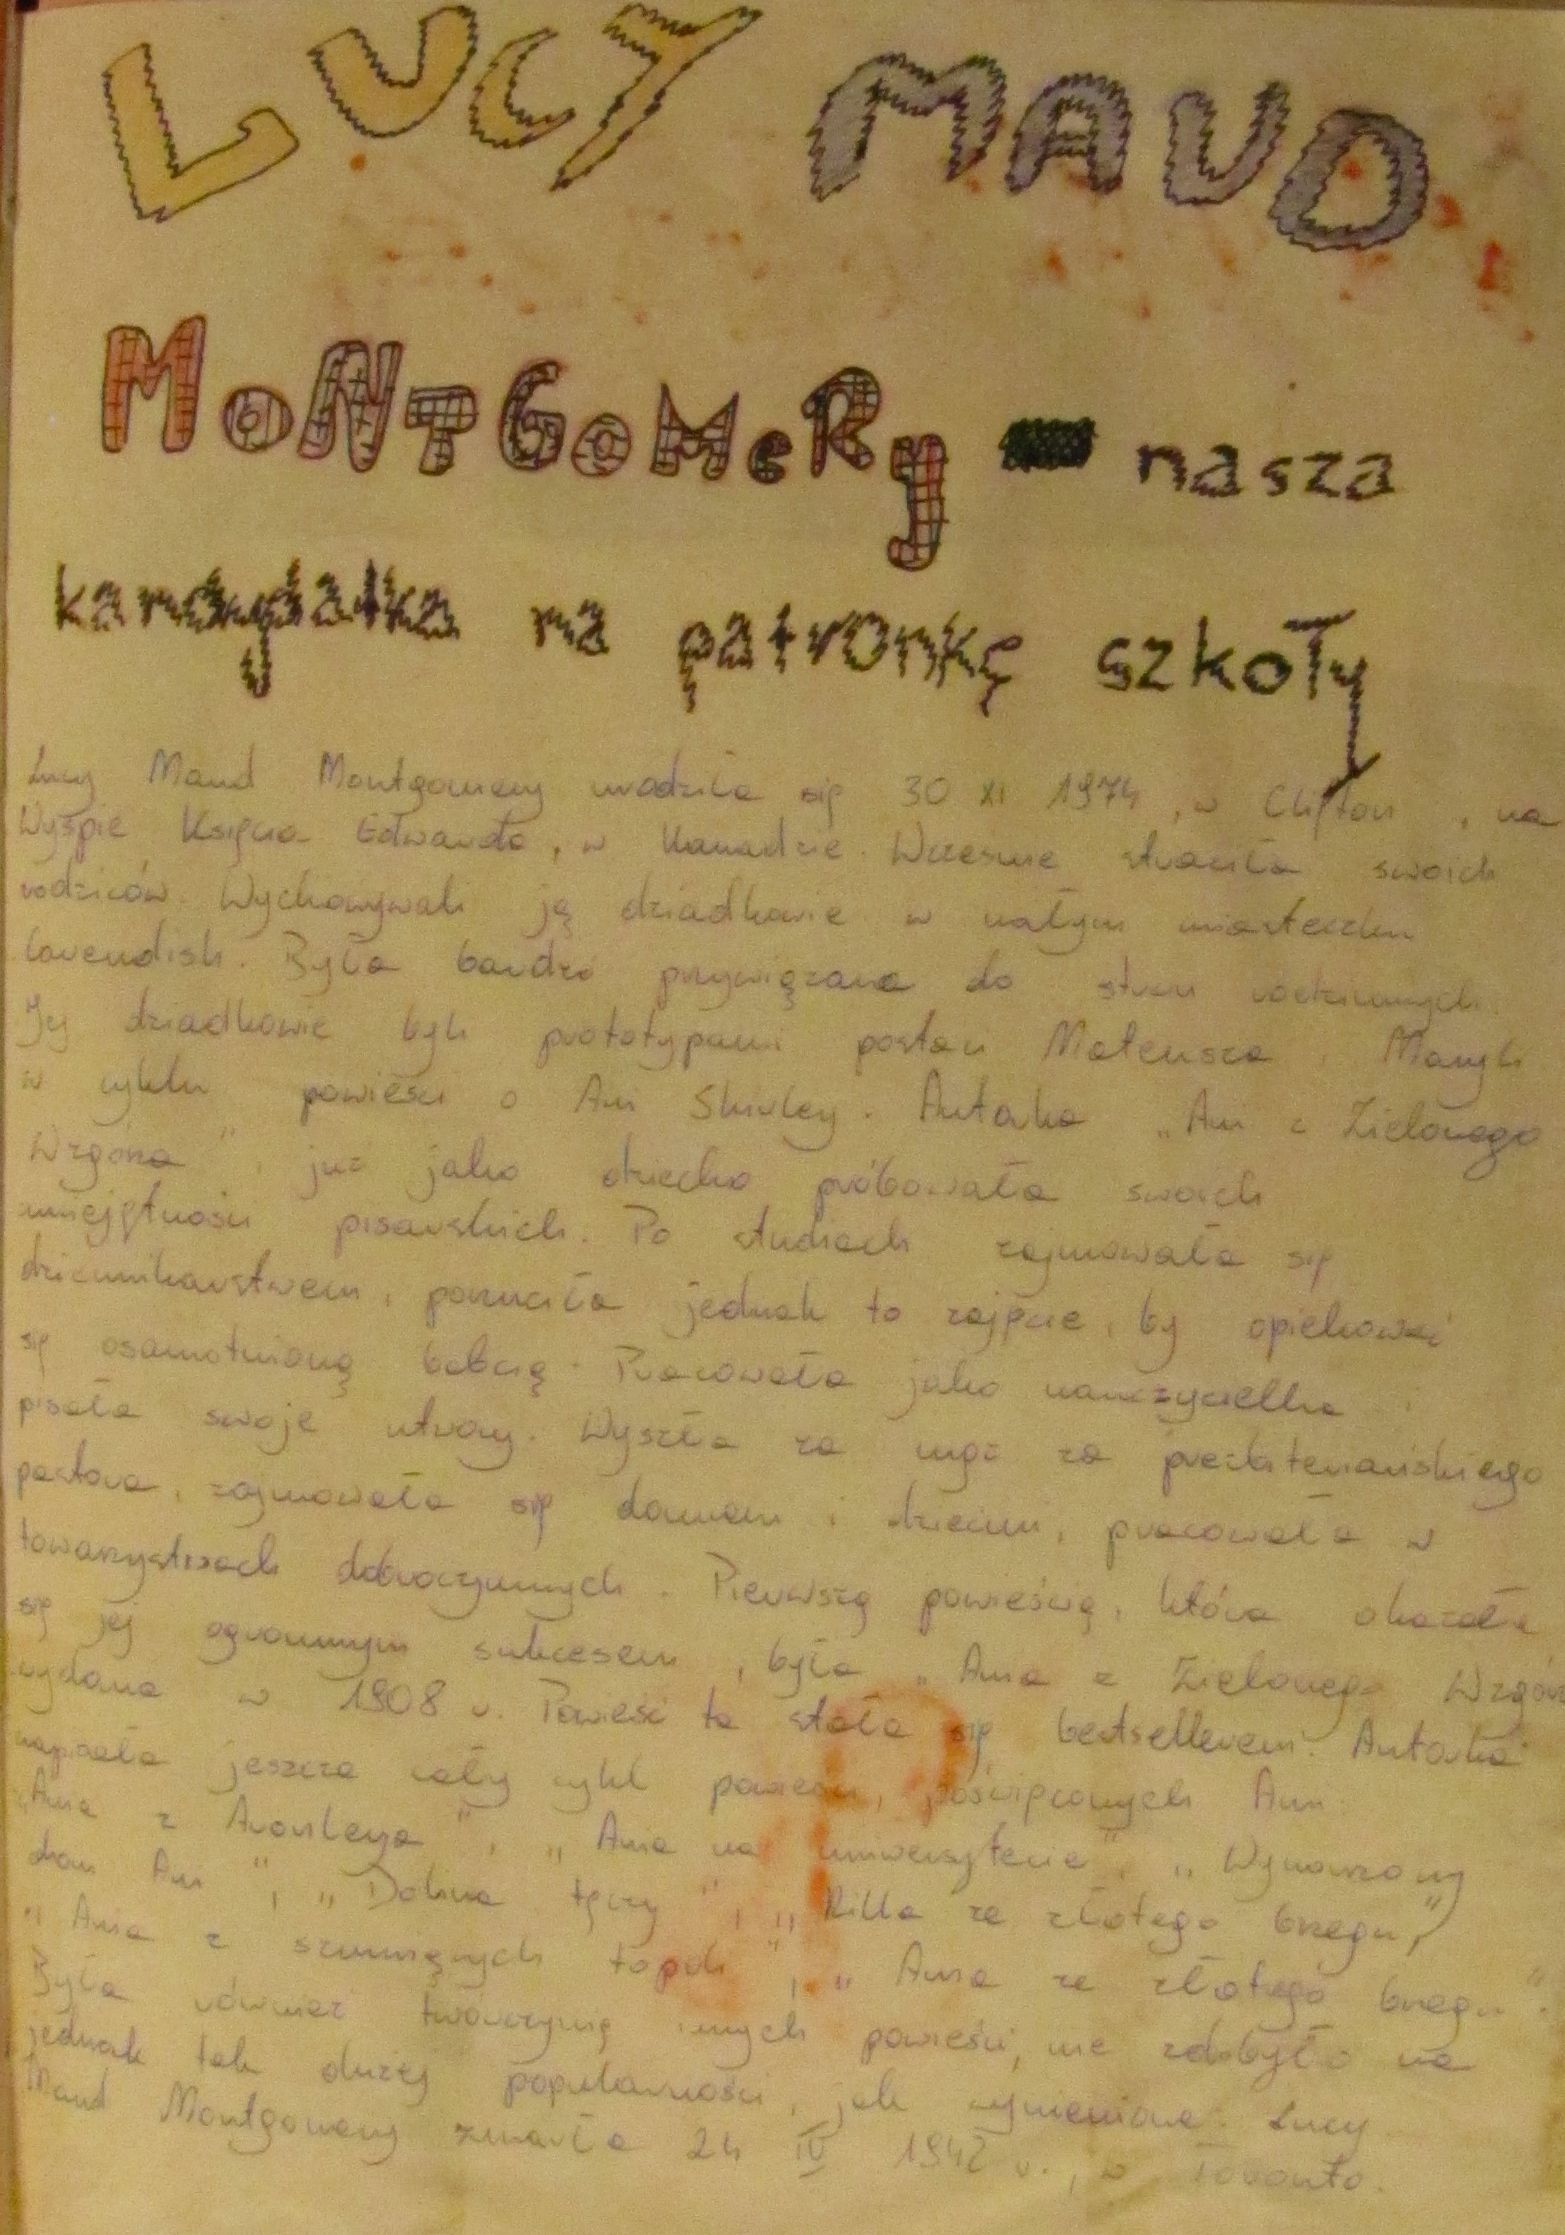 LUCY MAUD
MONTGOMeRy - nasza
kandydatka na patronkę szkoły
Lucy Maud Montgomery urodziła się 30 XI 1974, w Clifton, na
Wyspie Księcia Edwarda, w Kanadzie. Wcześnie straciła swoich
rodziców. Wychowywali ją dziadkowie w małym miasteczku
Cavendish. Była bardzo przywiązana do stron rodzinnych.
Jej dziadkowie byli prototypami postaci Mateusza i Maryli
w cyklu powieści o Ani Shirley. Autorka „Ani z Zielonego
Wzgórza", już jako dziecko próbowała swoich
umiejętności pisarskich. Po studiach zajmowała się
dziennikarstwem, porzuciła jednak to zajęcie, by opiekować
się osamotnioną babcią. Pracowała jako nauczycielka i
pisała swoje utwory. Wyszła za mąż za prezbiteriańskiego
pastora, zajmowała się domem i dziećmi, pracowała w
towarzystwach dobroczynnych. Pierwszą powieścią, która okazała
się jej ogromnym sukcesem, była „Ania z Zielonego Wzgórz
wydana w 1908 r. Powieść ta stała się bestsellerem. Autorka
napisała jeszcze cały cykl powieści, poświęconych Ani:
„Ania z Avonlea", „Ania na uniwersytecie", „Wymarzony
dom Ani", „Dolina tęczy", „Rilla ze złotego brzegu",
„Ania z szumiących topoli", „Ania ze złotego brzegu".
Była również twórczynią innych powieści, nie zdobyła na
jednak tak dużej popularności, jak wymienione. Lucy
Maud Montgomery zmarła 24 IV 1942 r., w Toronto.